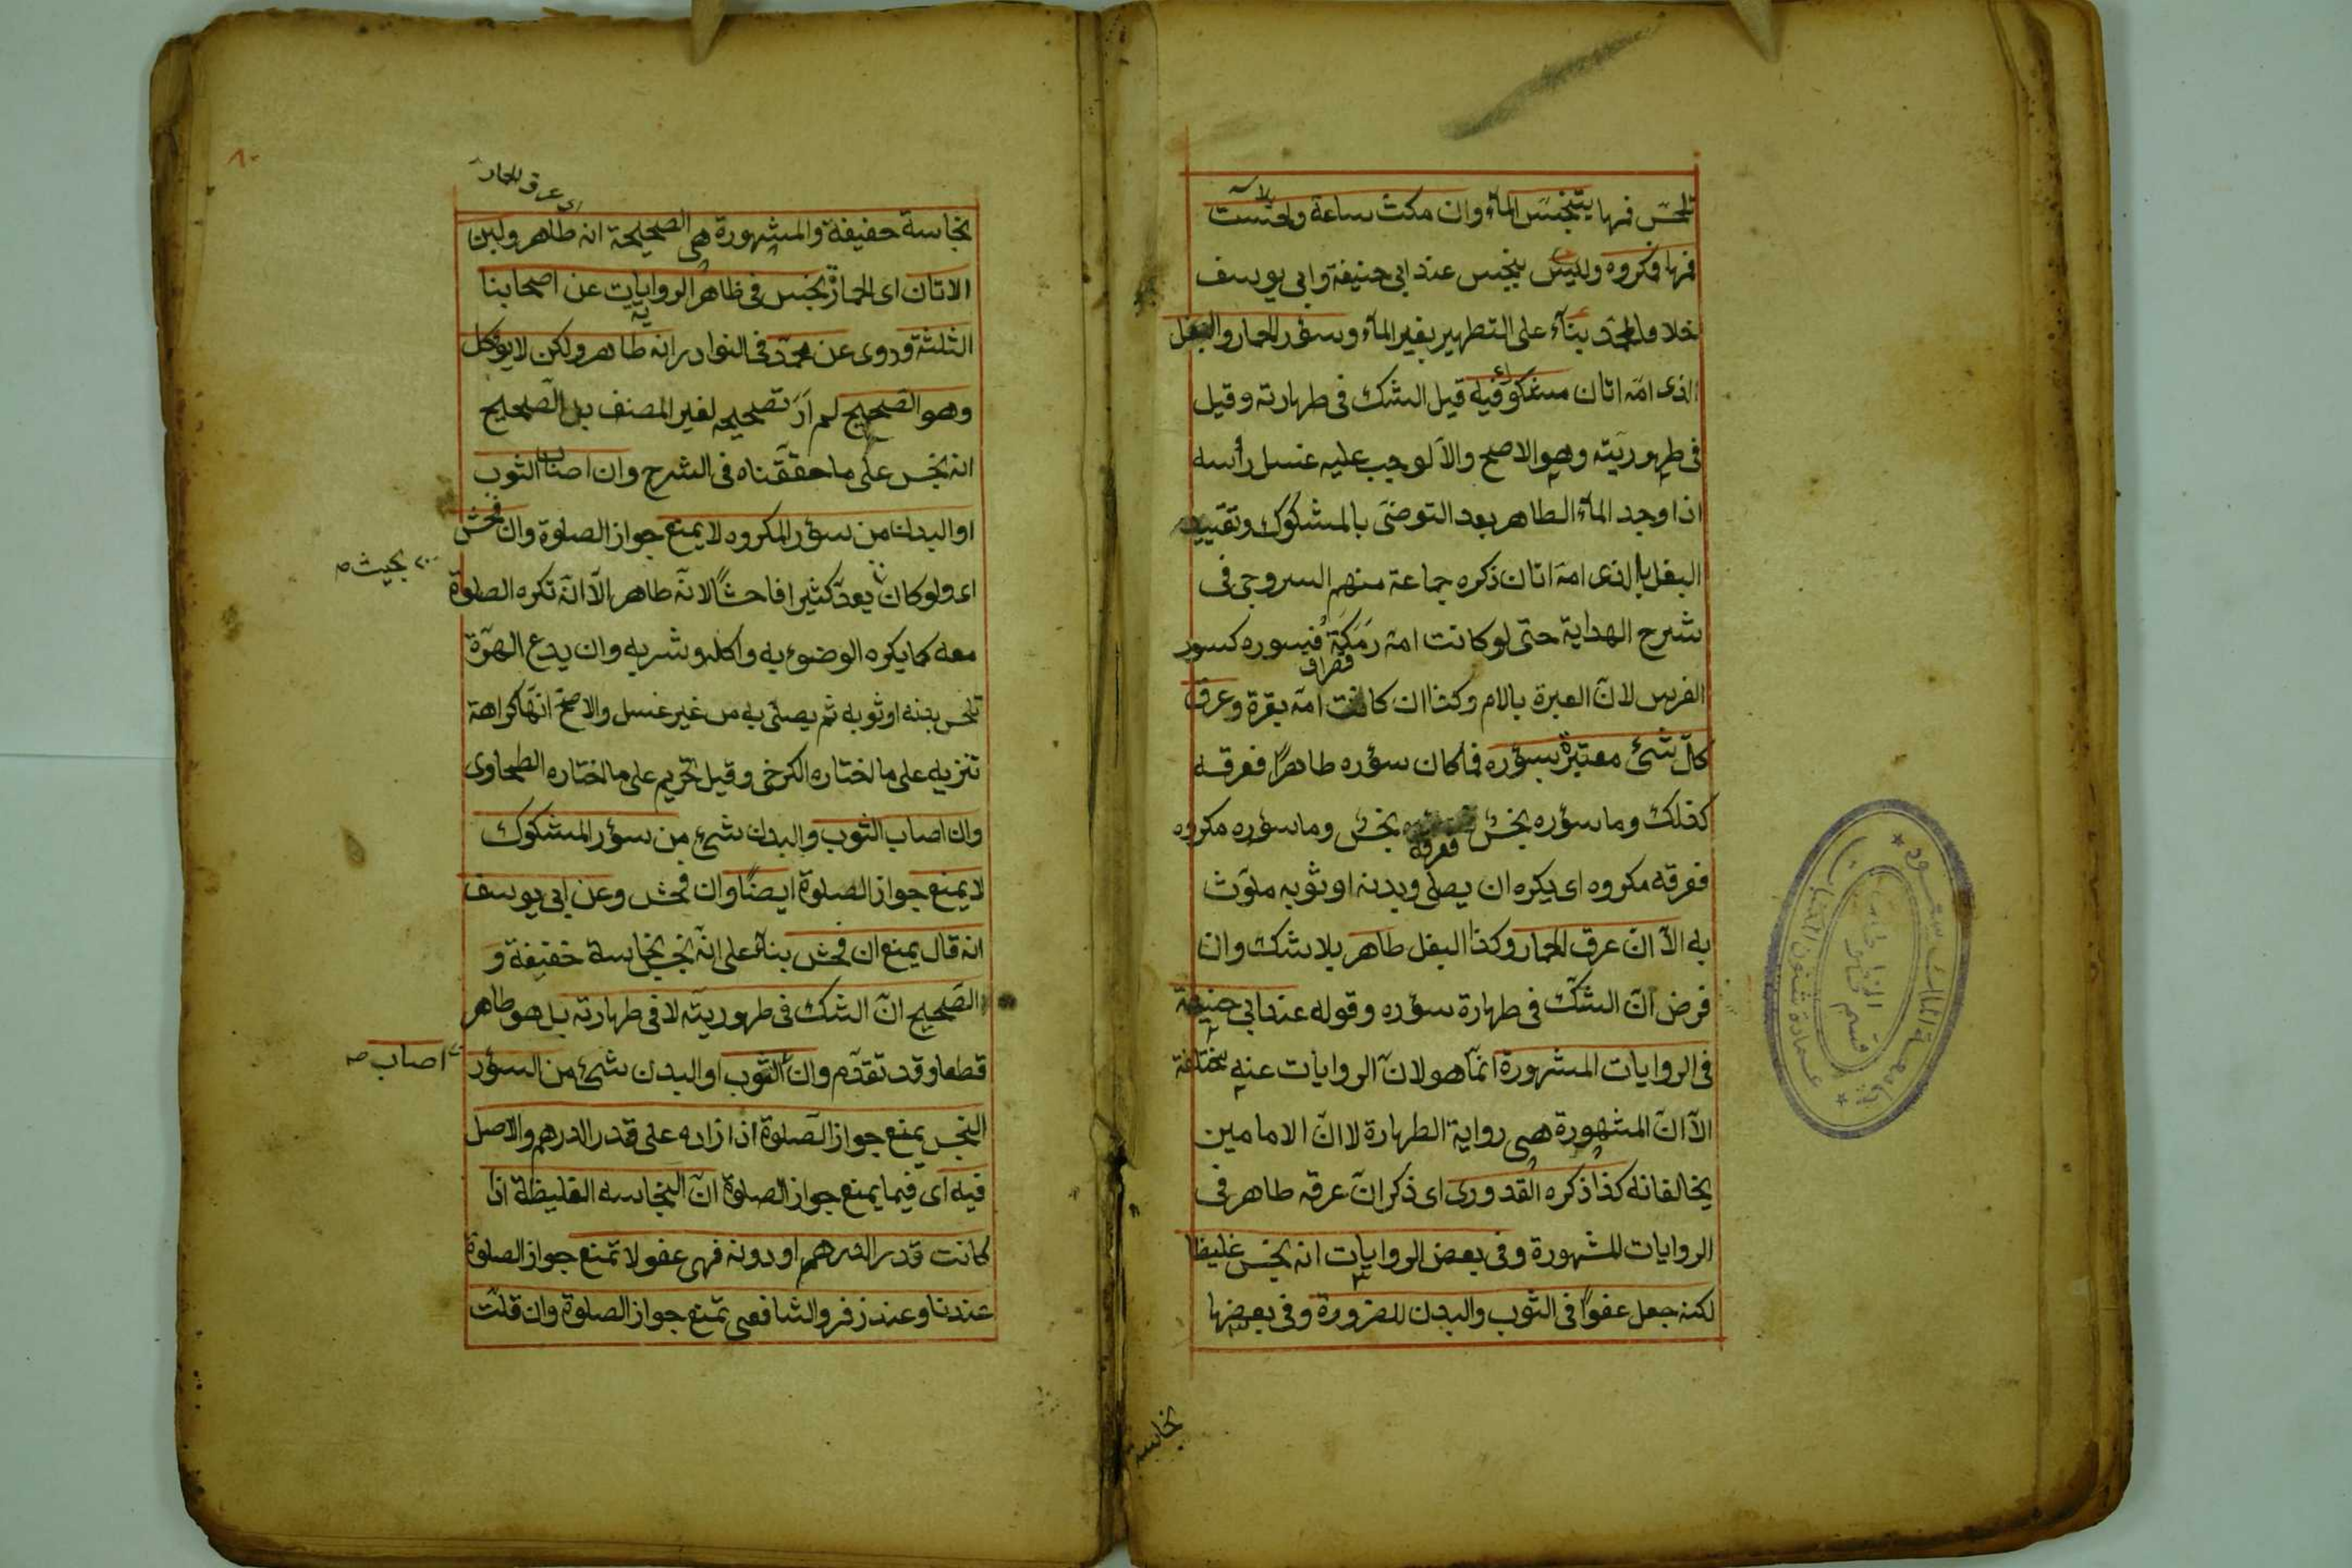 تلحس فمها يتنجس الماء وان مكثت ساعة ولحست
فمها فمكروه وليس بنجس عند ابى حنيفة وابى يوسف
خلافا لمحمد بناء على التطهير بغير الماء وسؤر الحمار والبغل
الذى امه اتان مشكوك فيه قيل الشك فى طهارته وقيل
فى طهوريته وهو الاصح والا لوجب عليه غسل رأسه
اذا وجد الماء الطاهر بعد التوضى بالمشكوك وتقييد
البغل بالذى امه اتان ذكره جماعة منهم السروجى فى
شرح الهداية حتى لو كانت امه رمكة فسوره كسور
الفرس لان العبرة بالام وكذا ان كانت امه بقرة وعرق
كل شئ معتبر بسؤره فما كان سؤره طاهرا فعرقه
كذلك وما سؤره نجس فعرقه نجس وما سؤره مكروه
فعرقه مكروه اى يكره ان يصلى وبدنه او ثوبه ملوث
به الا ان عرق الحمار وكذا البغل طاهر بلا شك وان
فرض ان الشك فى طهارة سؤره وقوله عند ابى حنيفة
فى الروايات المشهورة انما هو لان الروايات عنه مختلفة
الا ان المشهورة هى رواية الطهارة لا ان الامامين
يخالفانه كذا ذكره القدورى اى ذكر ان عرقه طاهر فى
الروايات المشهورة وفى بعض الروايات انه نجس غليظا
لكنه جعل عفوا فى الثوب والبدن للضرورة وفى بعضها
نجاسة
٨٠
اى عرق الحمار
نجاسة خفيفة والمشهورة هى الصحيحة انه طاهر ولبن
الاتان اى الحمارة نجس فى ظاهر الروايات عن اصحابنا
الثلثة وروى عن محمد فى النوادر انه طاهر ولكن لا يؤكل
وهو الصحيح لم ار تصحيحه لغير المصنف بل الصحيح
انه نجس على ما حققناه فى الشرح وان اصاب الثوب
او البدن من سؤر المكروه لا يمنع جواز الصلوة وان فحش
بحيث صه
اى ولو كان يعد كثيرا فاحشا لانه طاهر الا انه تكره الصلوة
معه كما يكره الوضوء به واكله وشربه وان يدع الهرة
تلحس بدنه او ثوبه ثم يصلى به من غير غسل والاصح انها كراهة
تنزيه على ما اختاره الكرخى وقيل تحريم على ما اختاره الطحاوى
وان اصاب الثوب والبدن شئ من سؤر المشكوك
لا يمنع جواز الصلوة ايضا وان فحش وعن ابى يوسف
انه قال يمنع ان فحش بناء على انه نجس نجاسة خفيفة و
الصحيح ان الشك فى طهوريته لا فى طهارته بل هو طاهر
قطعا وقد تقدم وان الثوب او البدن شئ من السؤر
اصاب صه
النجس يمنع جواز الصلوة اذا زاد على قدر الدرهم والاصل
فيه اى فيما يمنع جواز الصلوة ان النجاسه الغليظة اذا
كانت قدر الدرهم او دونه فهى عفو لا تمنع جواز الصلوة
عندنا وعند زفر والشافعى تمنع جواز الصلوة وان قلت